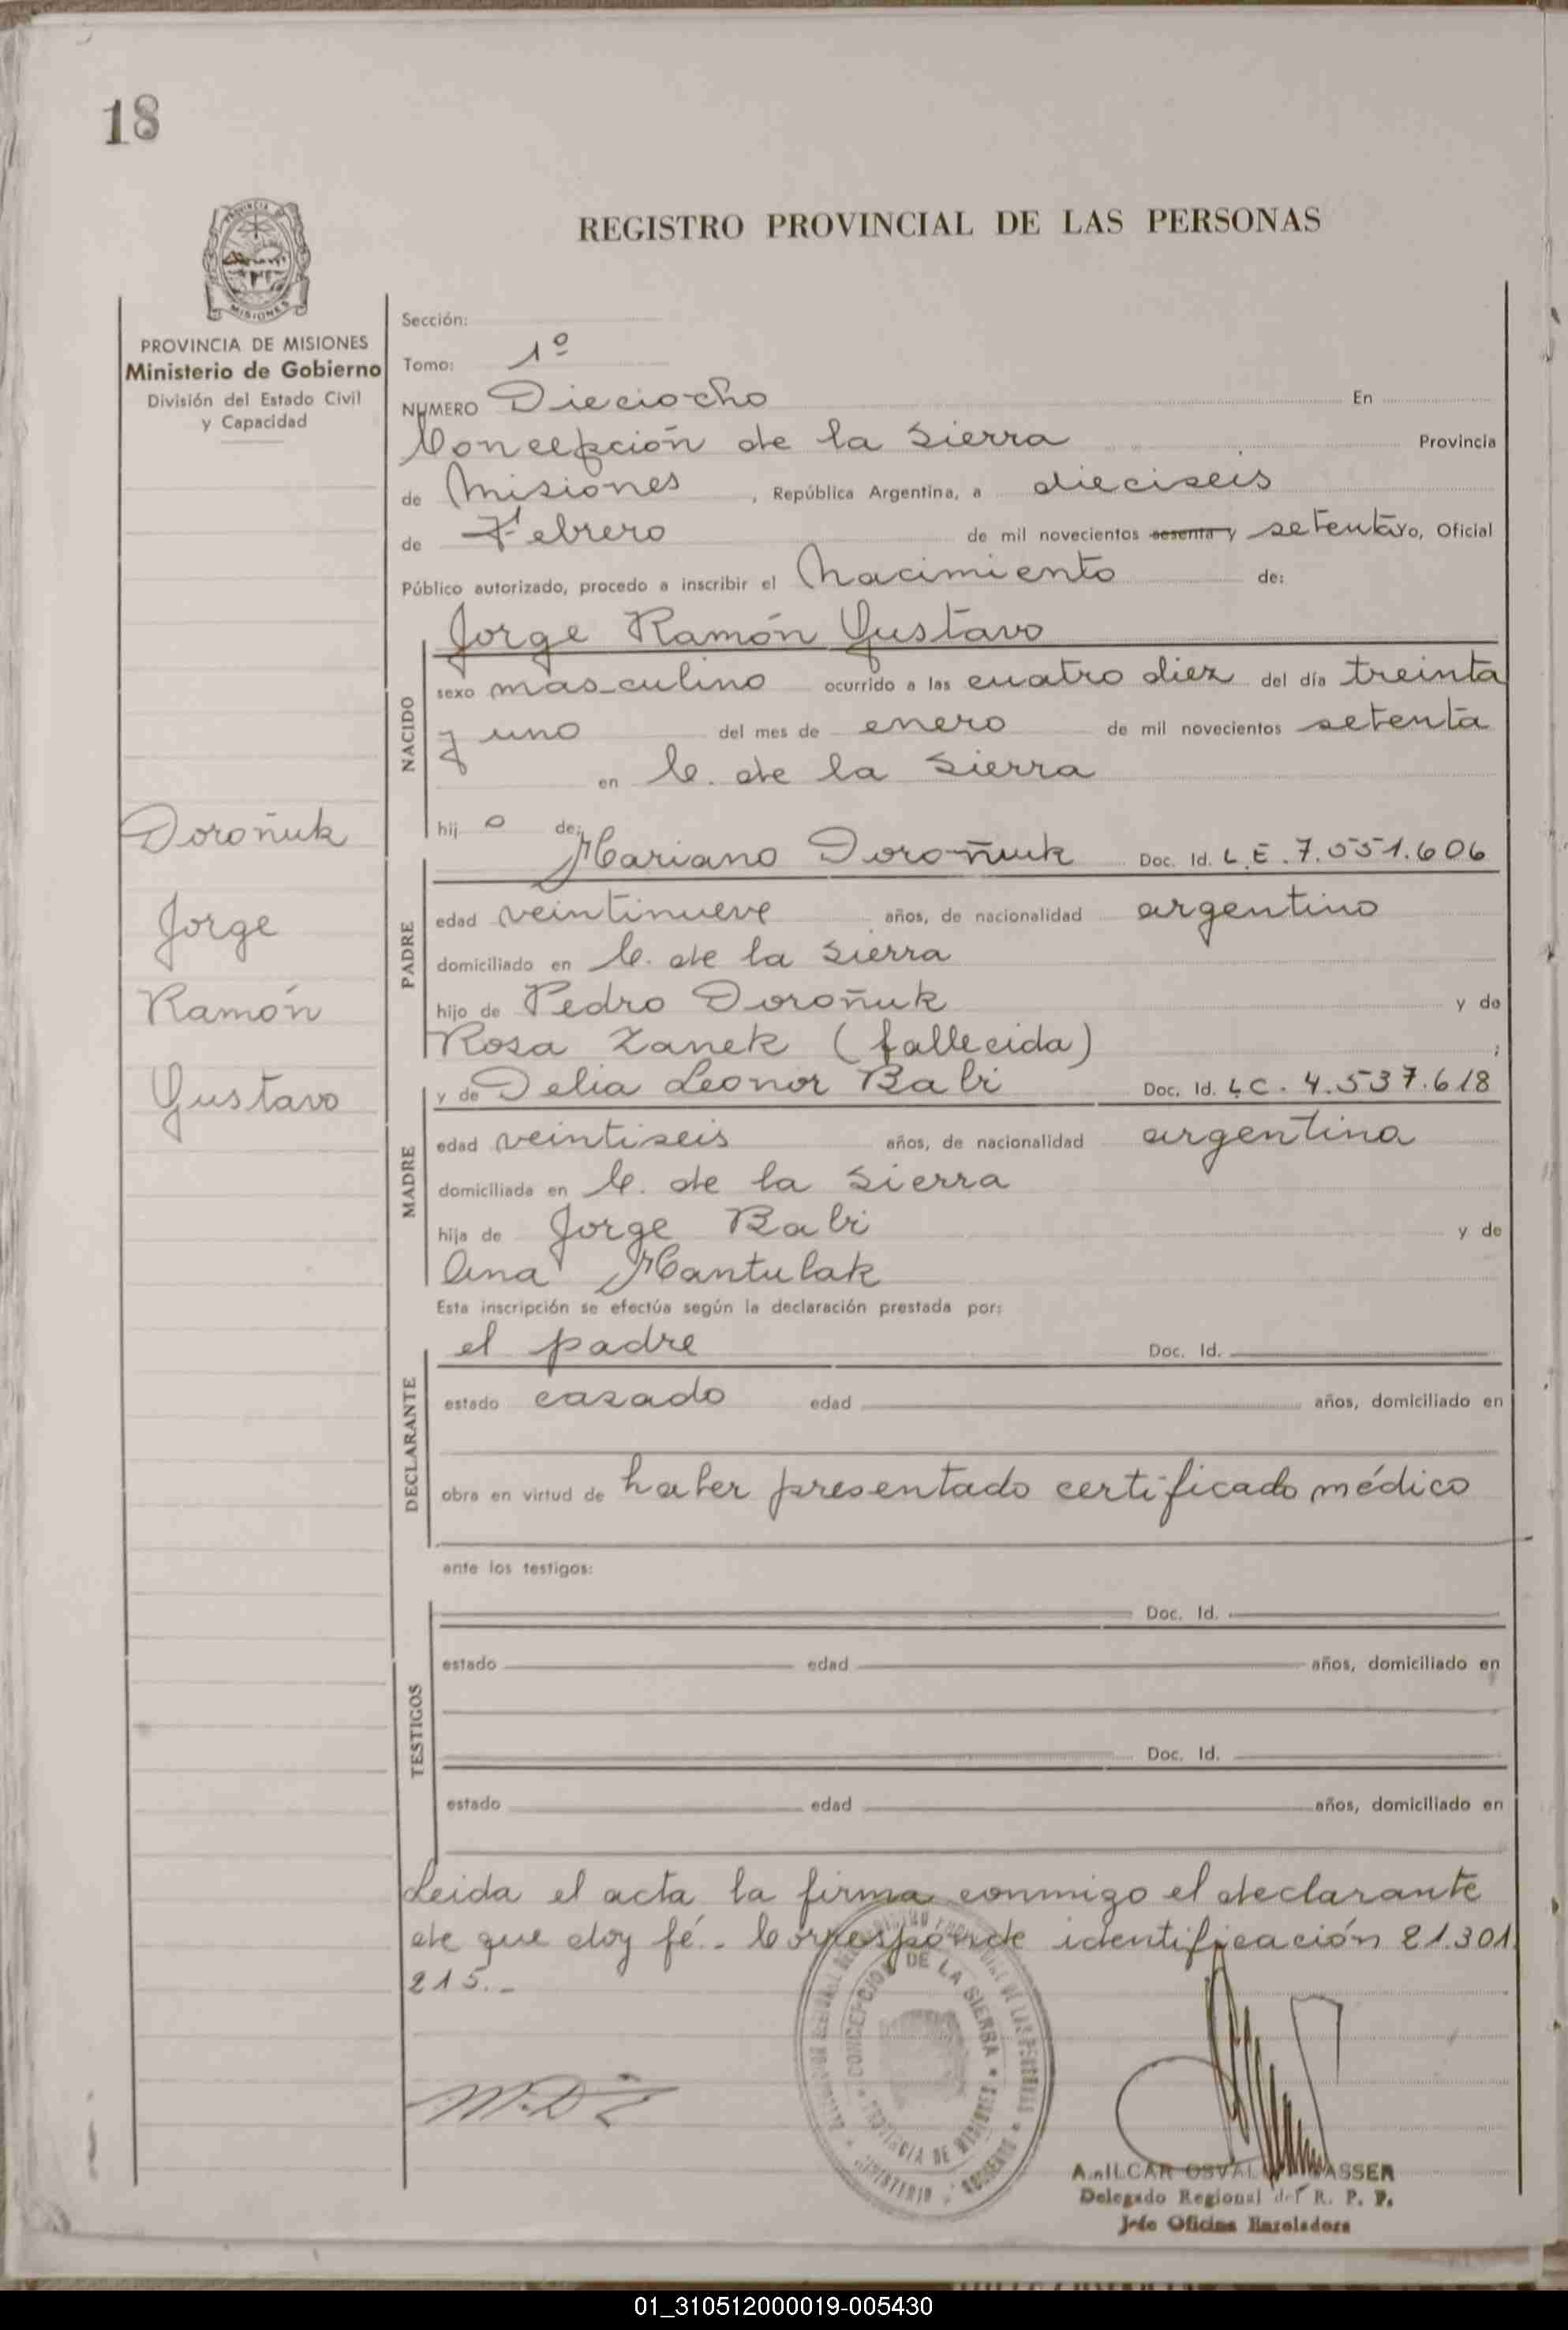 18
PROVINCIA DE
MISIONES
REGISTRO PROVINCIAL DE LAS PERSONAS
PROVINCIA DE MISIONES
Ministerio de Gobierno
División del Estado Civil
y Capacidad
Sección:
Tomo: 1º
NUMERO Dieciocho En
Concepción de la Sierra Provincia
de Misiones, República Argentina, a dieciseis
de Febrero de mil novecientos sesenta y setenta yo, Oficial
Público autorizado, procedo a inscribir el Nacimiento de:
Jorge Ramón Gustavo
NACIDO
sexo masculino ocurrido a las cuatro diez del día treinta
y uno del mes de enero de mil novecientos setenta
en C. de la Sierra
hij o de:
Doroñuk
Jorge
Ramón
Gustavo
PADRE
Mariano Doroñuk Doc. Id. L.E. 7.551.606
edad veintinueve años, de nacionalidad argentino
domiciliado en C. de la Sierra
hijo de Pedro Doroñuk y de
Rosa Zanek (fallecida) ;
MADRE
y de Delia Leonor Babi Doc. Id. LC. 4.537.618
edad veintiseis años, de nacionalidad argentina
domiciliada en C. de la Sierra
hija de Jorge Babi y de
Ana Mantulak
Esta inscripción se efectúa según la declaración prestada por:
DECLARANTE
el padre Doc. Id.
estado casado edad años, domiciliado en
obra en virtud de haber presentado certificado médico
ante los testigos:
TESTIGOS
Doc. Id.
estado edad años, domiciliado en
Doc. Id.
estado edad años, domiciliado en
Leida el acta la firma conmigo el declarante
de que doy fé.- Corresponde identificación 21.301.
215.-
CONCEPCION DE LA SIERRA * PROVINCIA DE MISIONES *
OSVAL
Delegado Regional del R. P. P.
Jefe Oficina Enroladora
01_310512000019-005430